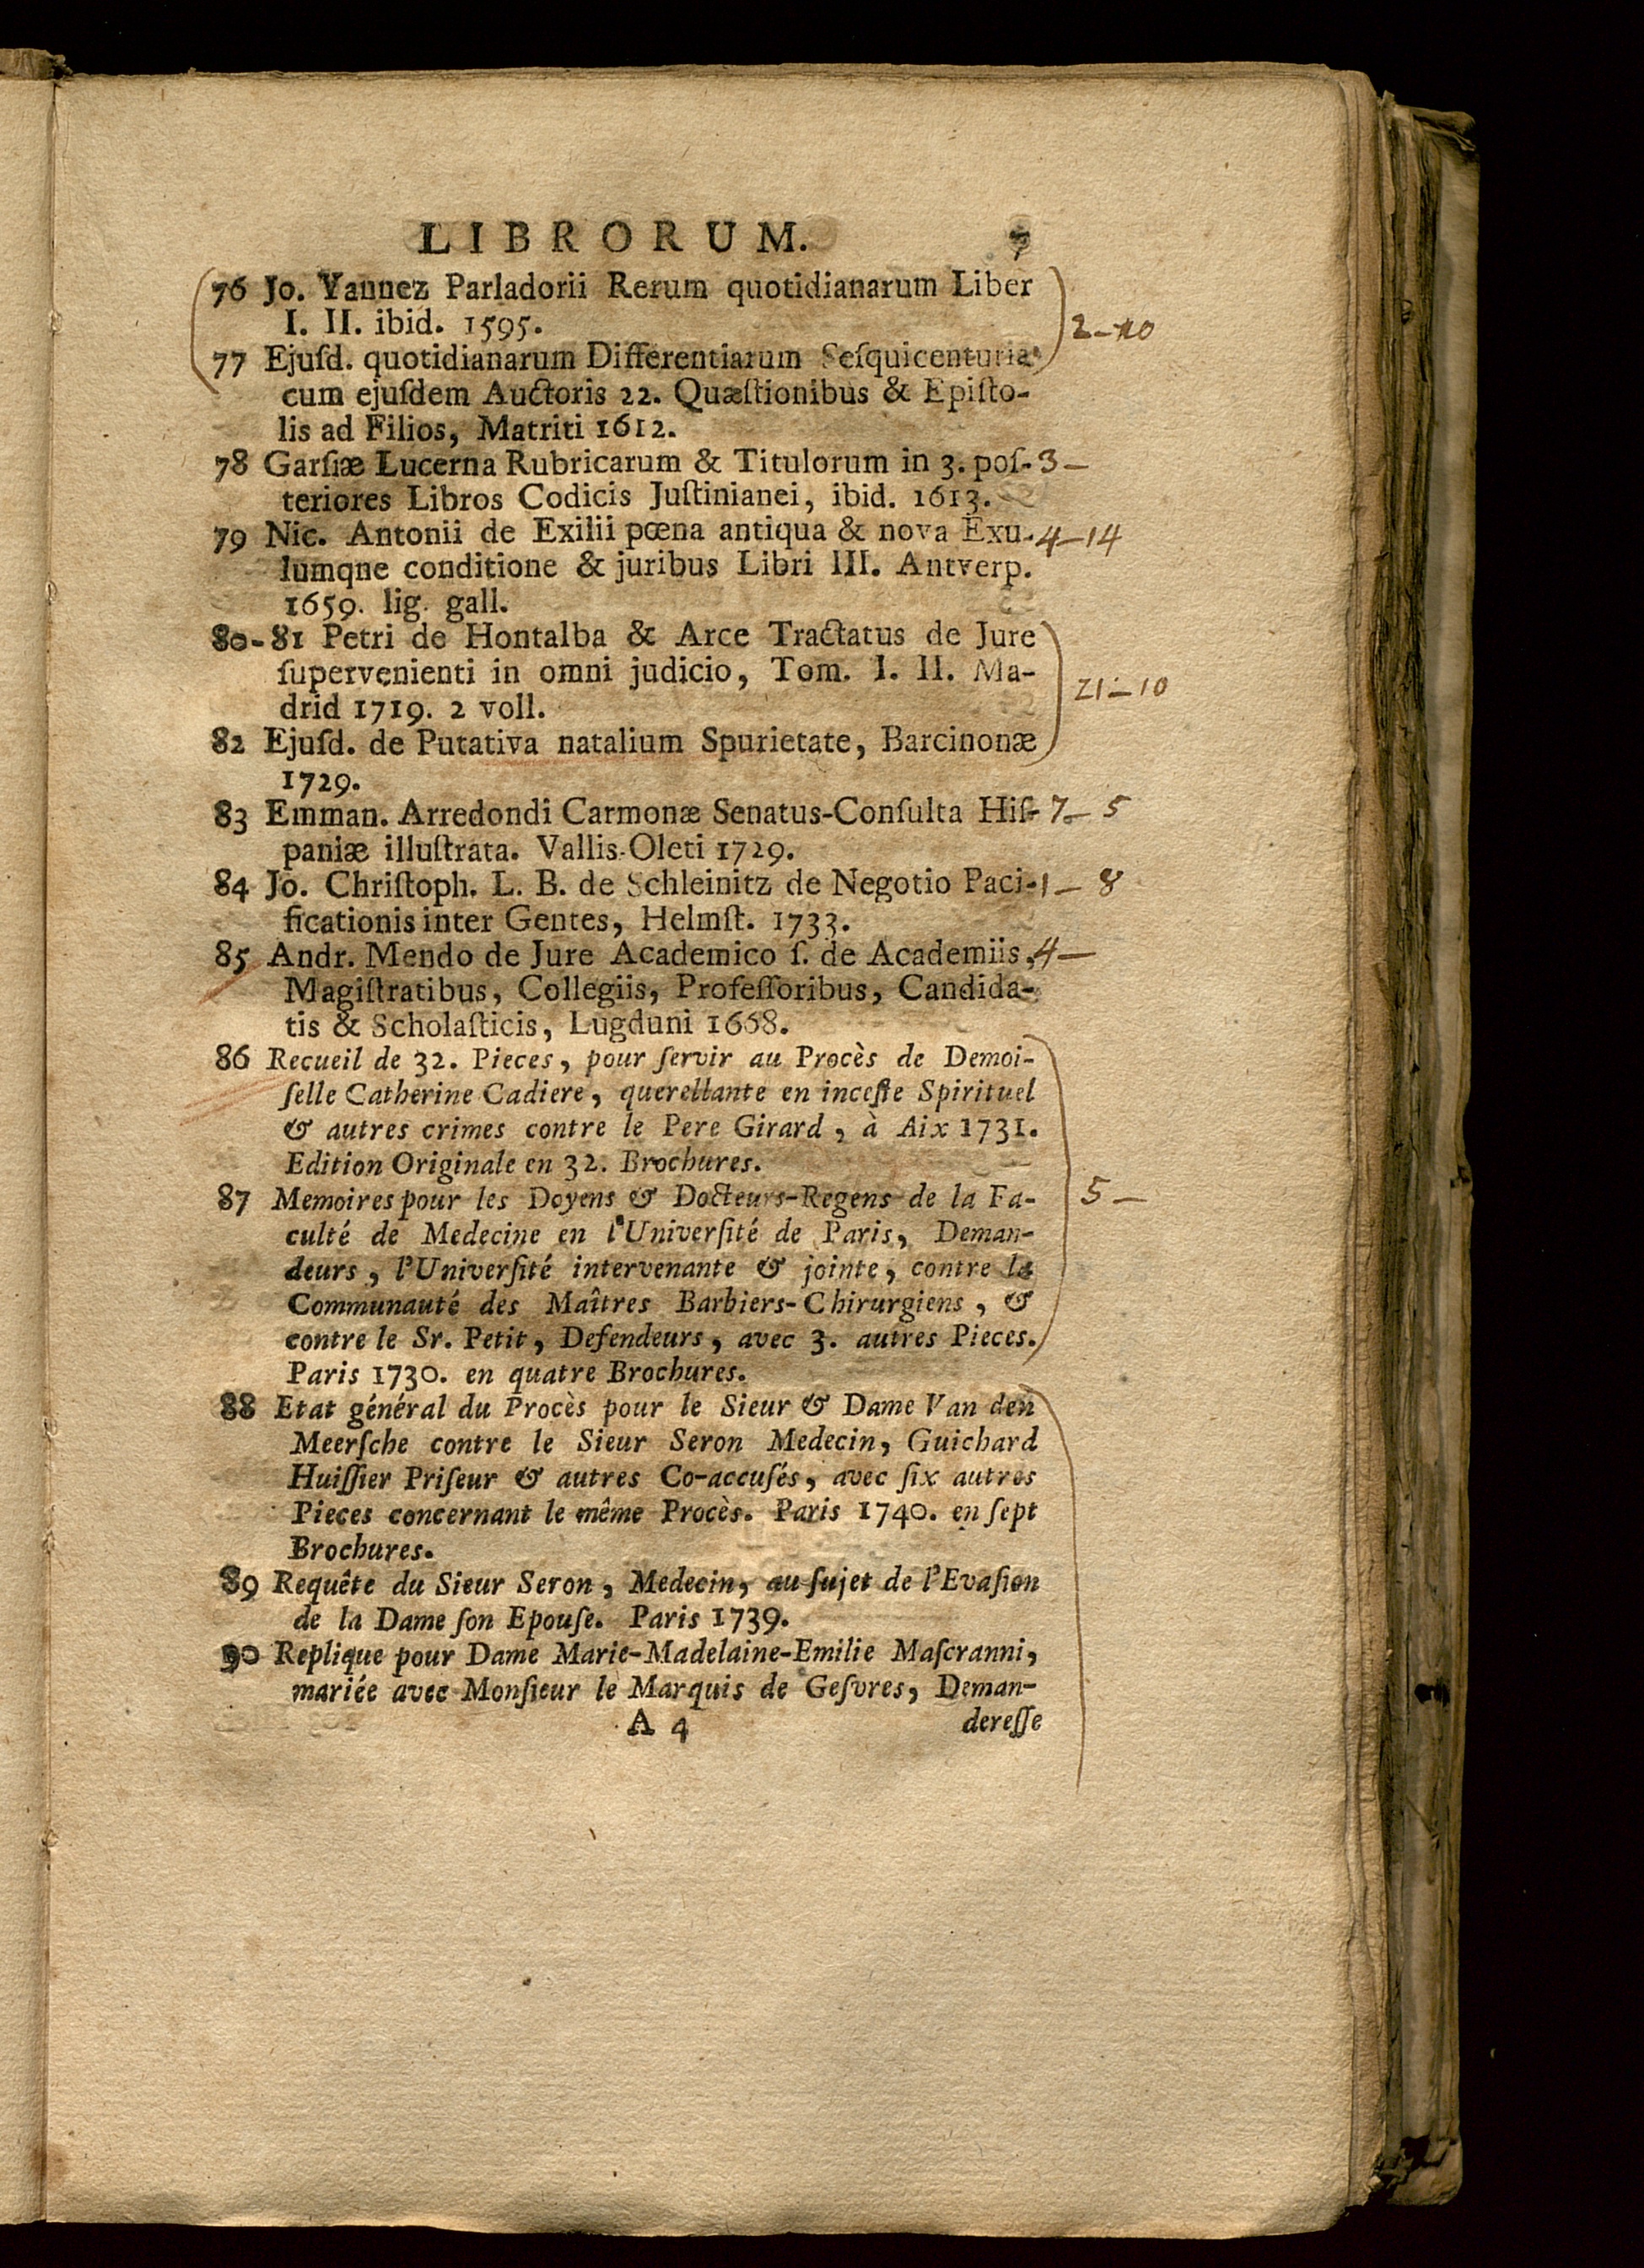 LIBRORUM. 7
76 Jo. Yannez Parladorii Rerum quotidianarum Liber
I. II. ibid. 1595.
2-10
77 Ejuſd. quotidianarum Differentiarum Seſquicenturia
cum ejuſdem Auctoris 22. Quæſtionibus & Epiſto-
lis ad Filios, Matriti 1612.
78 Garſiæ Lucerna Rubricarum & Titulorum in 3. poſ- 3-
teriores Libros Codicis Juſtinianei, ibid. 1613.
79 Nic. Antonii de Exilii pœna antiqua & nova Exu- 4-14
lumqne conditione & juribus Libri III. Antverp.
1659. lig. gall.
80-81 Petri de Hontalba & Arce Tractatus de Jure
ſupervenienti in omni judicio, Tom. I. II. Ma-
21-10
drid 1719. 2 voll.
82 Ejuſd. de Putativa natalium Spurietate, Barcinonæ
1729.
83 Emman. Arredondi Carmonæ Senatus-Conſulta Hiſ- 7-5
paniæ illuſtrata. Vallis-Oleti 1729.
84 Jo. Chriſtoph. L. B. de Schleinitz de Negotio Paci- 1-8
ficationis inter Gentes, Helmſt. 1733.
85 Andr. Mendo de Jure Academico ſ. de Academiis, 4-
Magiſtratibus, Collegiis, Profeſſoribus, Candida-
tis & Scholaſticis, Lugduni 1668.
86 Recueil de 32. Pieces, pour ſervir au Procès de Demoi-
ſelle Catherine Cadiere, querellante en inceſte Spirituel
& autres crimes contre le Pere Girard, à Aix 1731.
Edition Originale en 32. Brochures.
87 Memoires pour les Doyens & Docteurs-Regens de la Fa- 5-
culté de Medecine en l'Univerſité de Paris, Deman-
deurs, l'Univerſité intervenante & jointe, contre la
Communauté des Maîtres Barbiers-Chirurgiens, &
contre le Sr. Petit, Defendeurs, avec 3. autres Pieces.
Paris 1730. en quatre Brochures.
88 Etat général du Procès pour le Sieur & Dame Van den
Meerſche contre le Sieur Seron Medecin, Guichard
Huiſſier Priſeur & autres Co-accuſés, avec ſix autres
Pieces concernant le même Procès. Paris 1740. en ſept
Brochures.
89 Requête du Sieur Seron, Medecin, au ſujet de l'Evaſion
de la Dame ſon Epouſe. Paris 1739.
90 Replique pour Dame Marie-Madelaine-Emilie Maſcranni,
mariée avec Monſieur le Marquis de Geſvres, Deman-
A 4 dereſſe